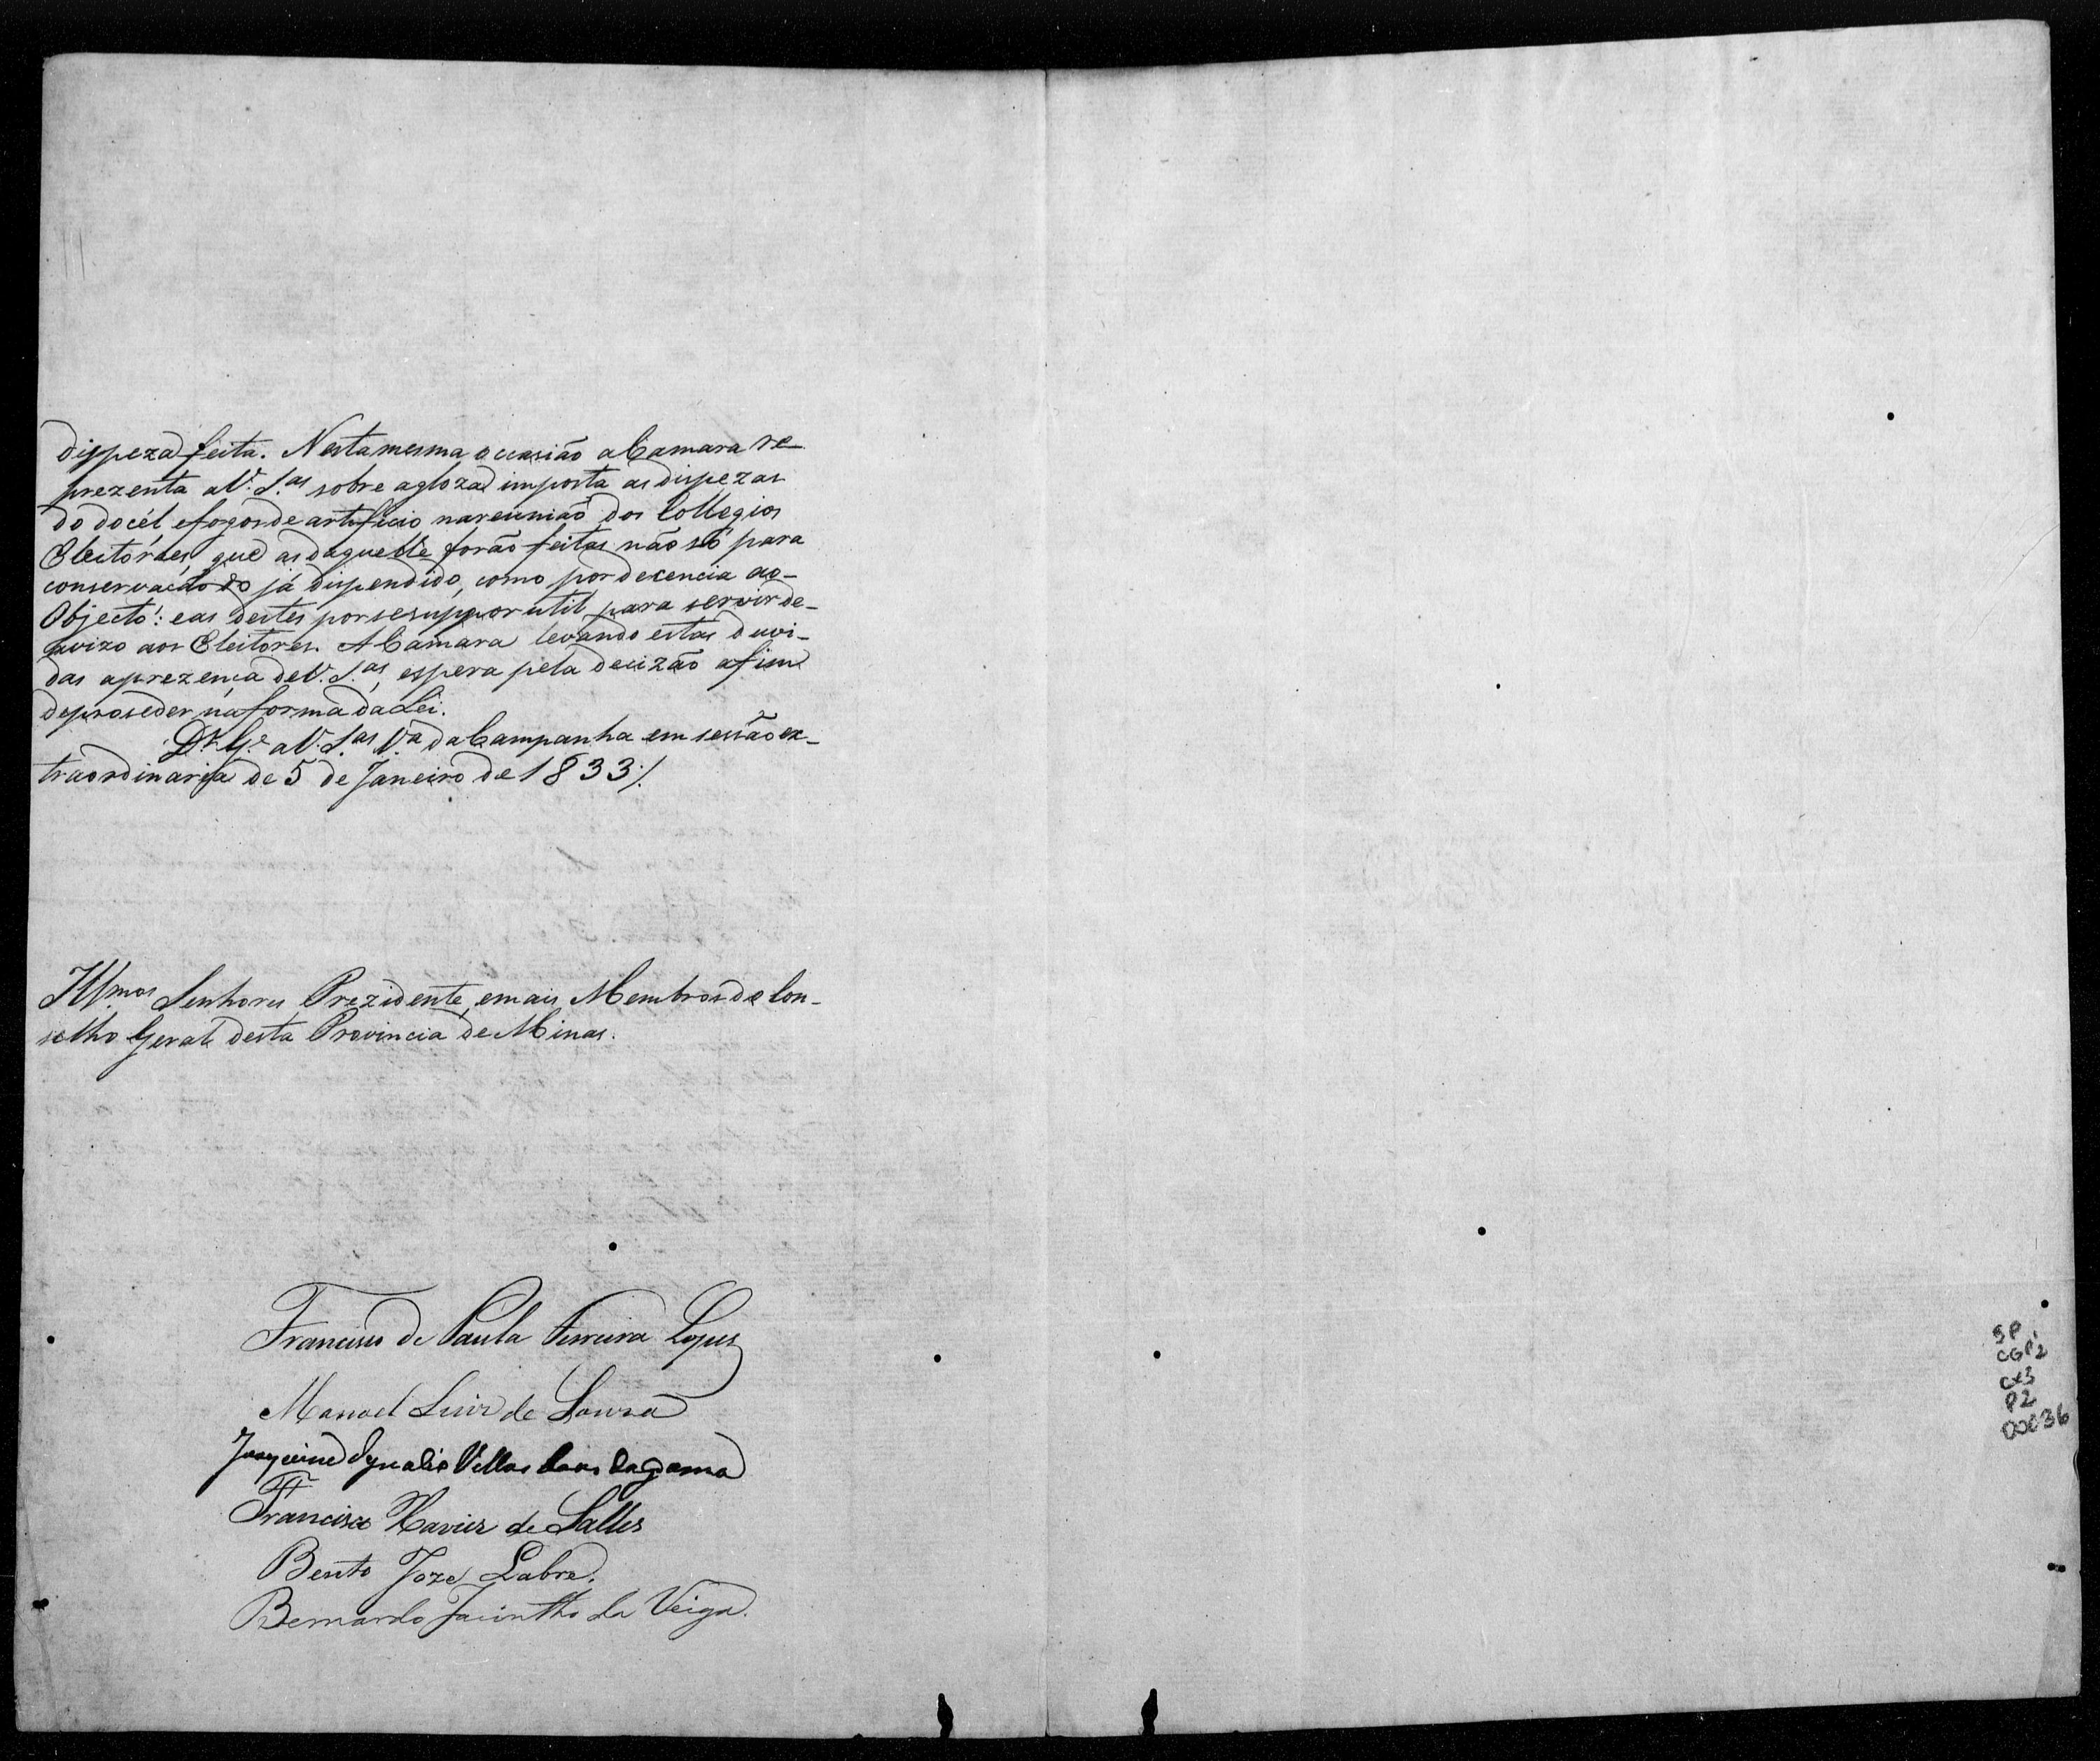 dispeza feita. Nesta mesma occasião a Camara re-
prezenta a V. S.as sobre a gloza imposta as dispezas
do docél, e fogos de artificio na reunião dos Collegios
Eleitoraes, que as daquelle forão feitas não só para
conservação do já dispendido, como por decencia ao-
Objecto: e as destes por se suppor util para servir de-
avizo aos Eleitores. A Camara levando estas duvi-
das a prezença de V. S.as, espera pela decizão afim
de proseder na forma da Lei.
D.s G.e a V. S.as V.a da Campanha em sessão ex-
traordinaria de 5 de Janeiro de 1833 /.
Ill.mos Senhores Prezidente, e mais Membros do Con-
selho Geral desta Provincia de Minas.
Francisco de Paula Ferreira Lopes
Manoel Luiz de Souza
Joaquim Ignacio Villas boas da Gama
Francisco Xavier de Salles
Bento Joze Labre.
Bernardo Jacintho da Veiga.
SP
CGP2
cx3
P2
00036